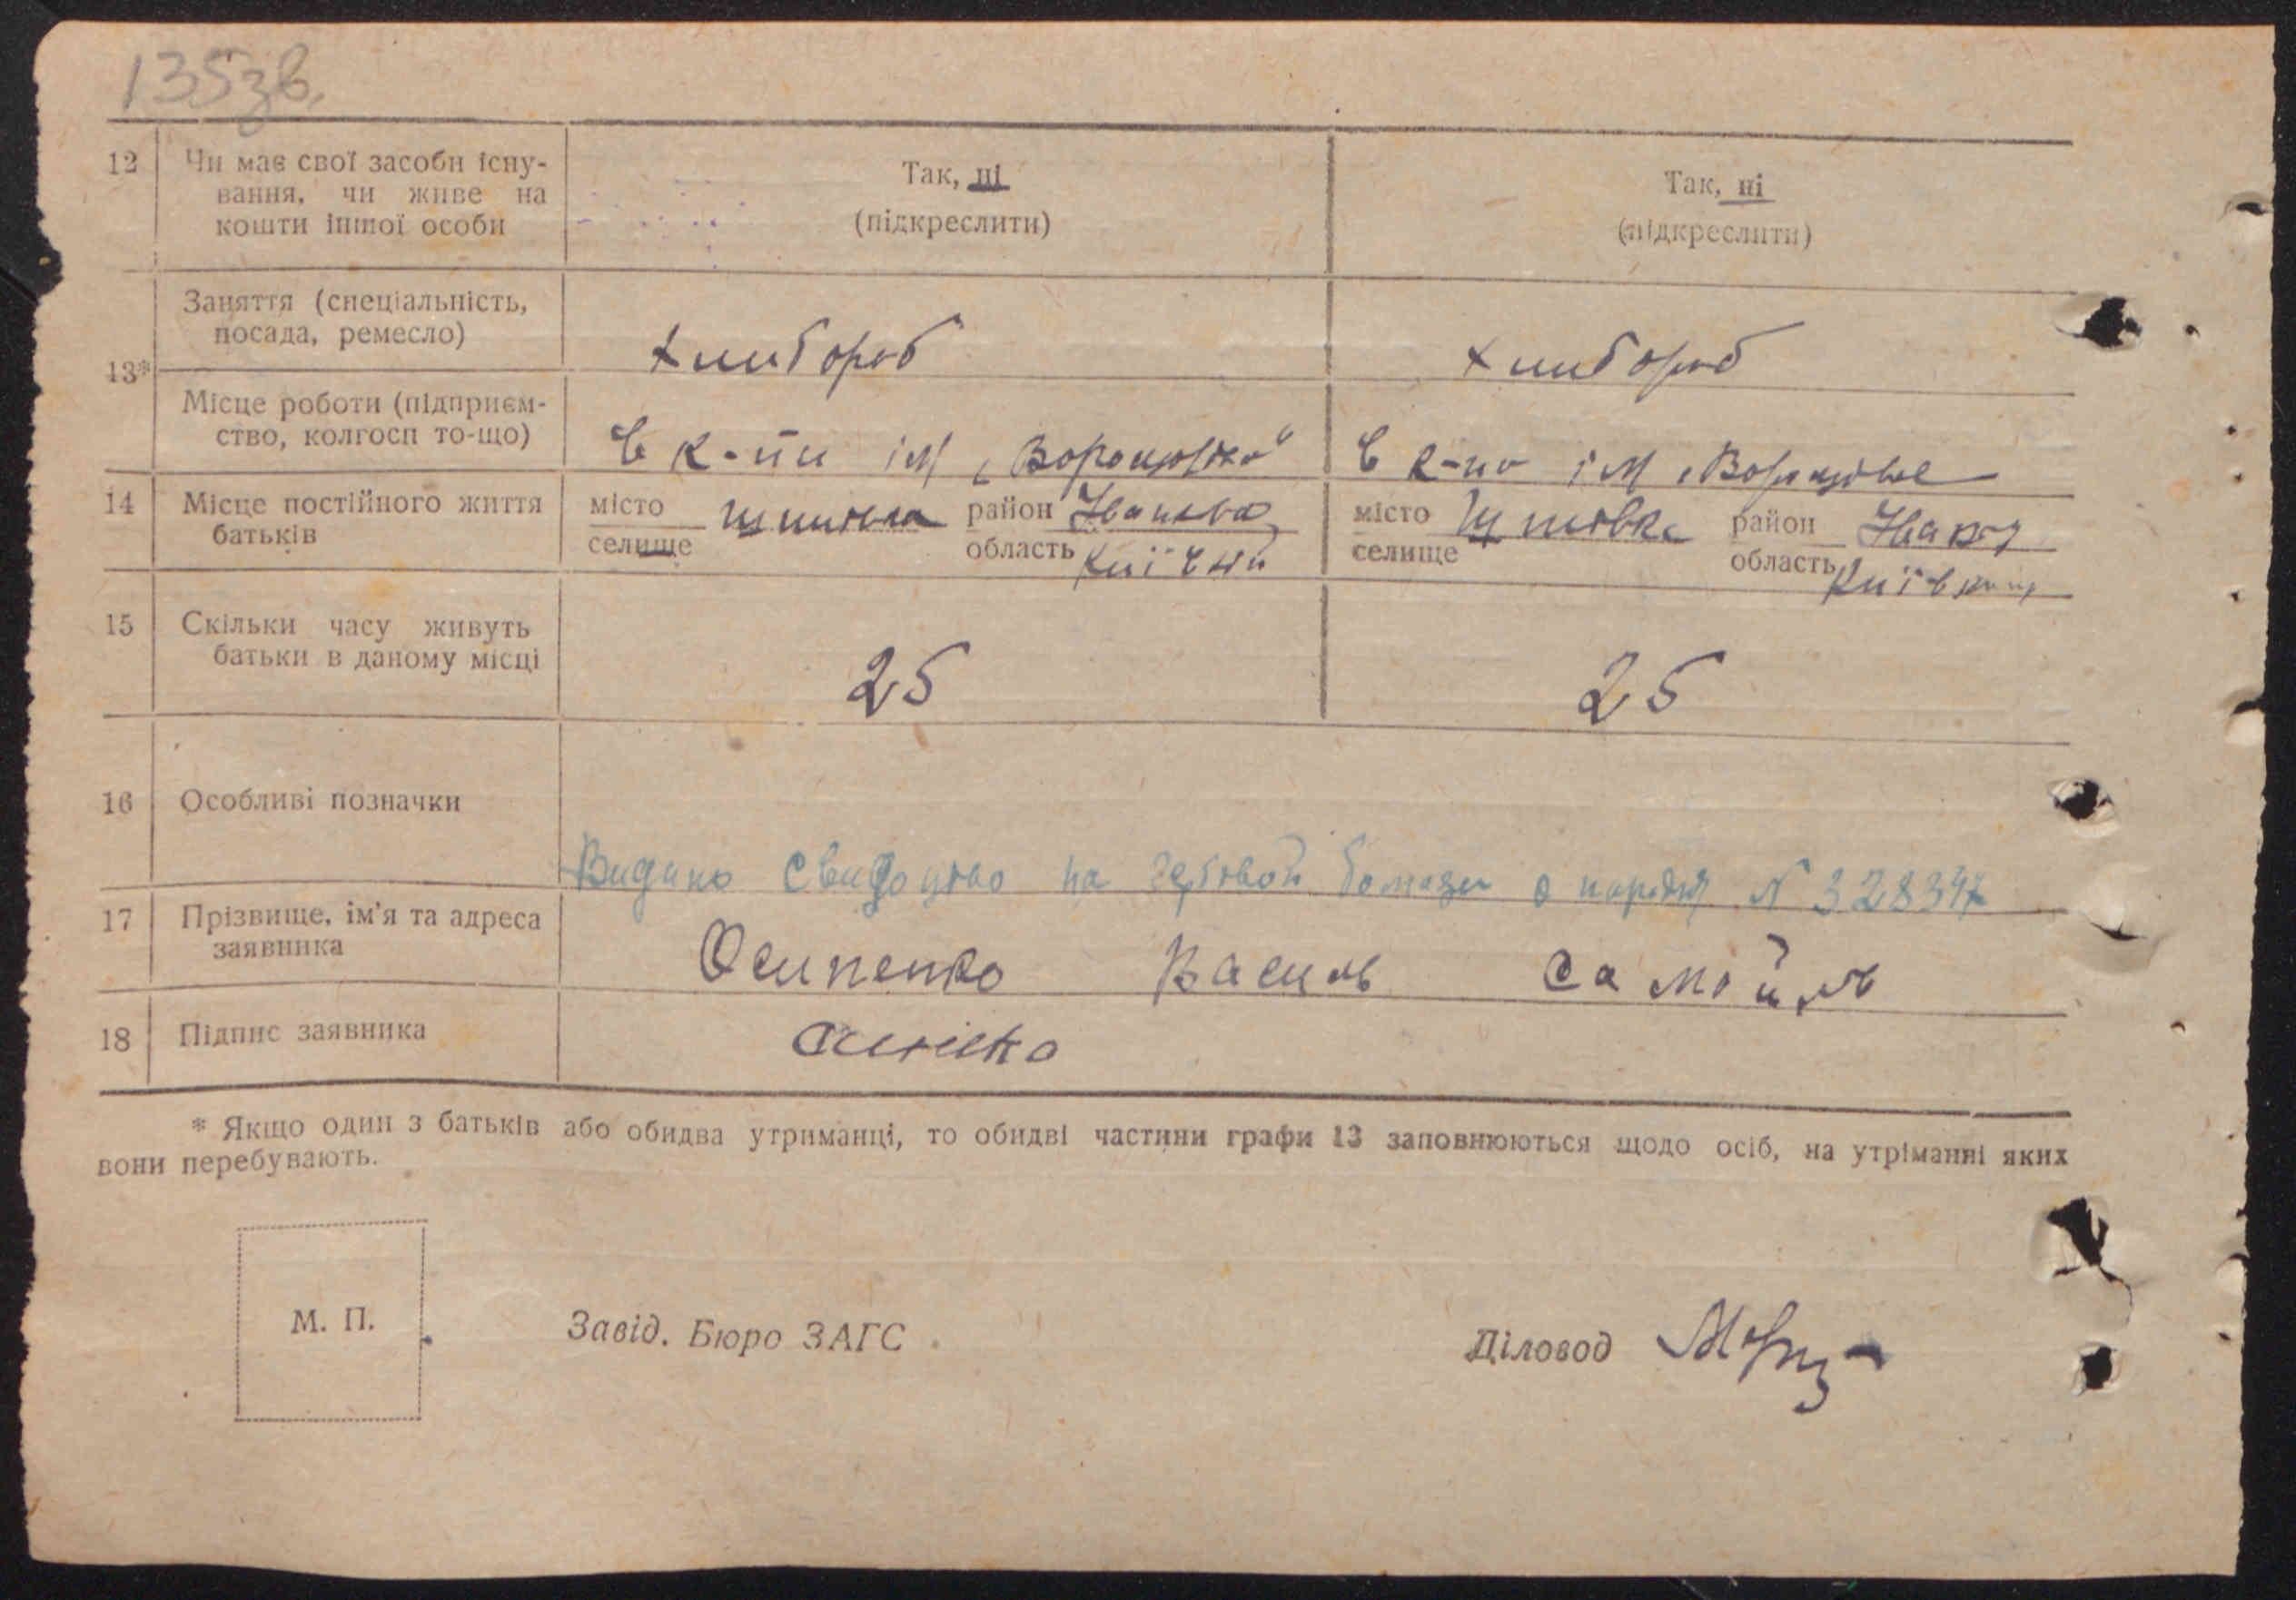 135зв.
12 Чи має свої засоби існу-
вання, чи живе на
кошти іншої особи
Так, ні
(підкреслити)
Так, ні
(підкреслити)
13*
Заняття (спеціальність,
посада, ремесло)
хлибороб
хлибороб
Місце роботи (підприєм-
ство, колгосп то-що)
В к-пи ім
В к-по ім
14 Місце постійного життя
батьків
місто
селище
район
область
місто
селище
район
область
15 Скільки часу живуть
батьки в даному місці
25
25
16 Особливі позначки
Видано свидоцтво на гербовой бомази о народж N 328347
17 Прізвище, ім'я та адреса
заявника
Осипенко Василь Самойль
18 Підпис заявника
* Якщо один з батьків або обидва утриманці, то обидві частини графи 13 заповнюються щодо осіб, на утріманні яких
вони перебувають.
М. П.
Завід. Бюро ЗАГС
Діловод